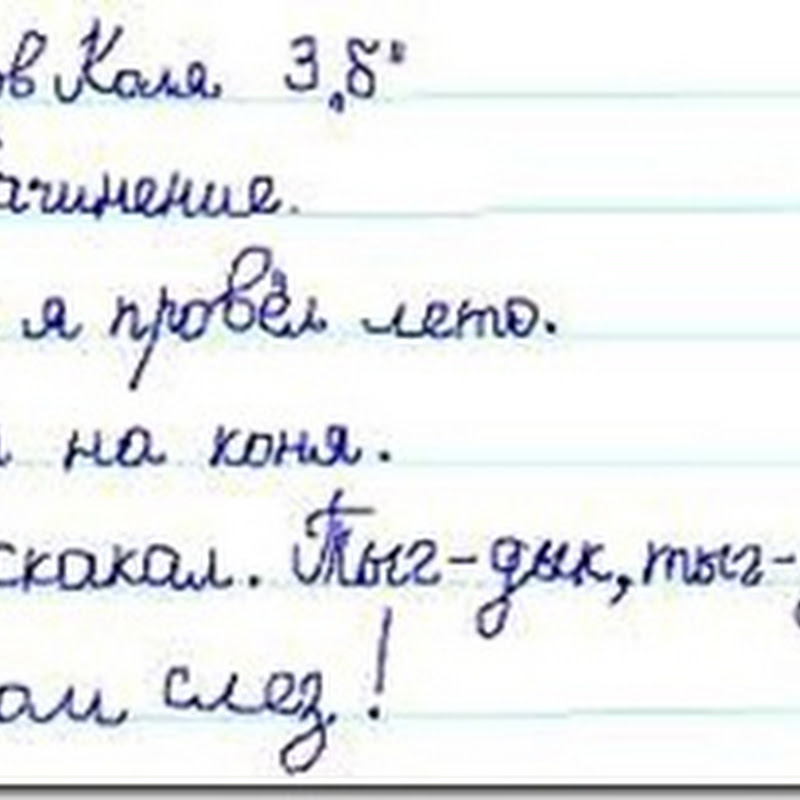 ов Коля 3 „б"
ачинение.
я провёл лето.
на коня.
скакал. Тыг-дык, тыг-
ом слез!